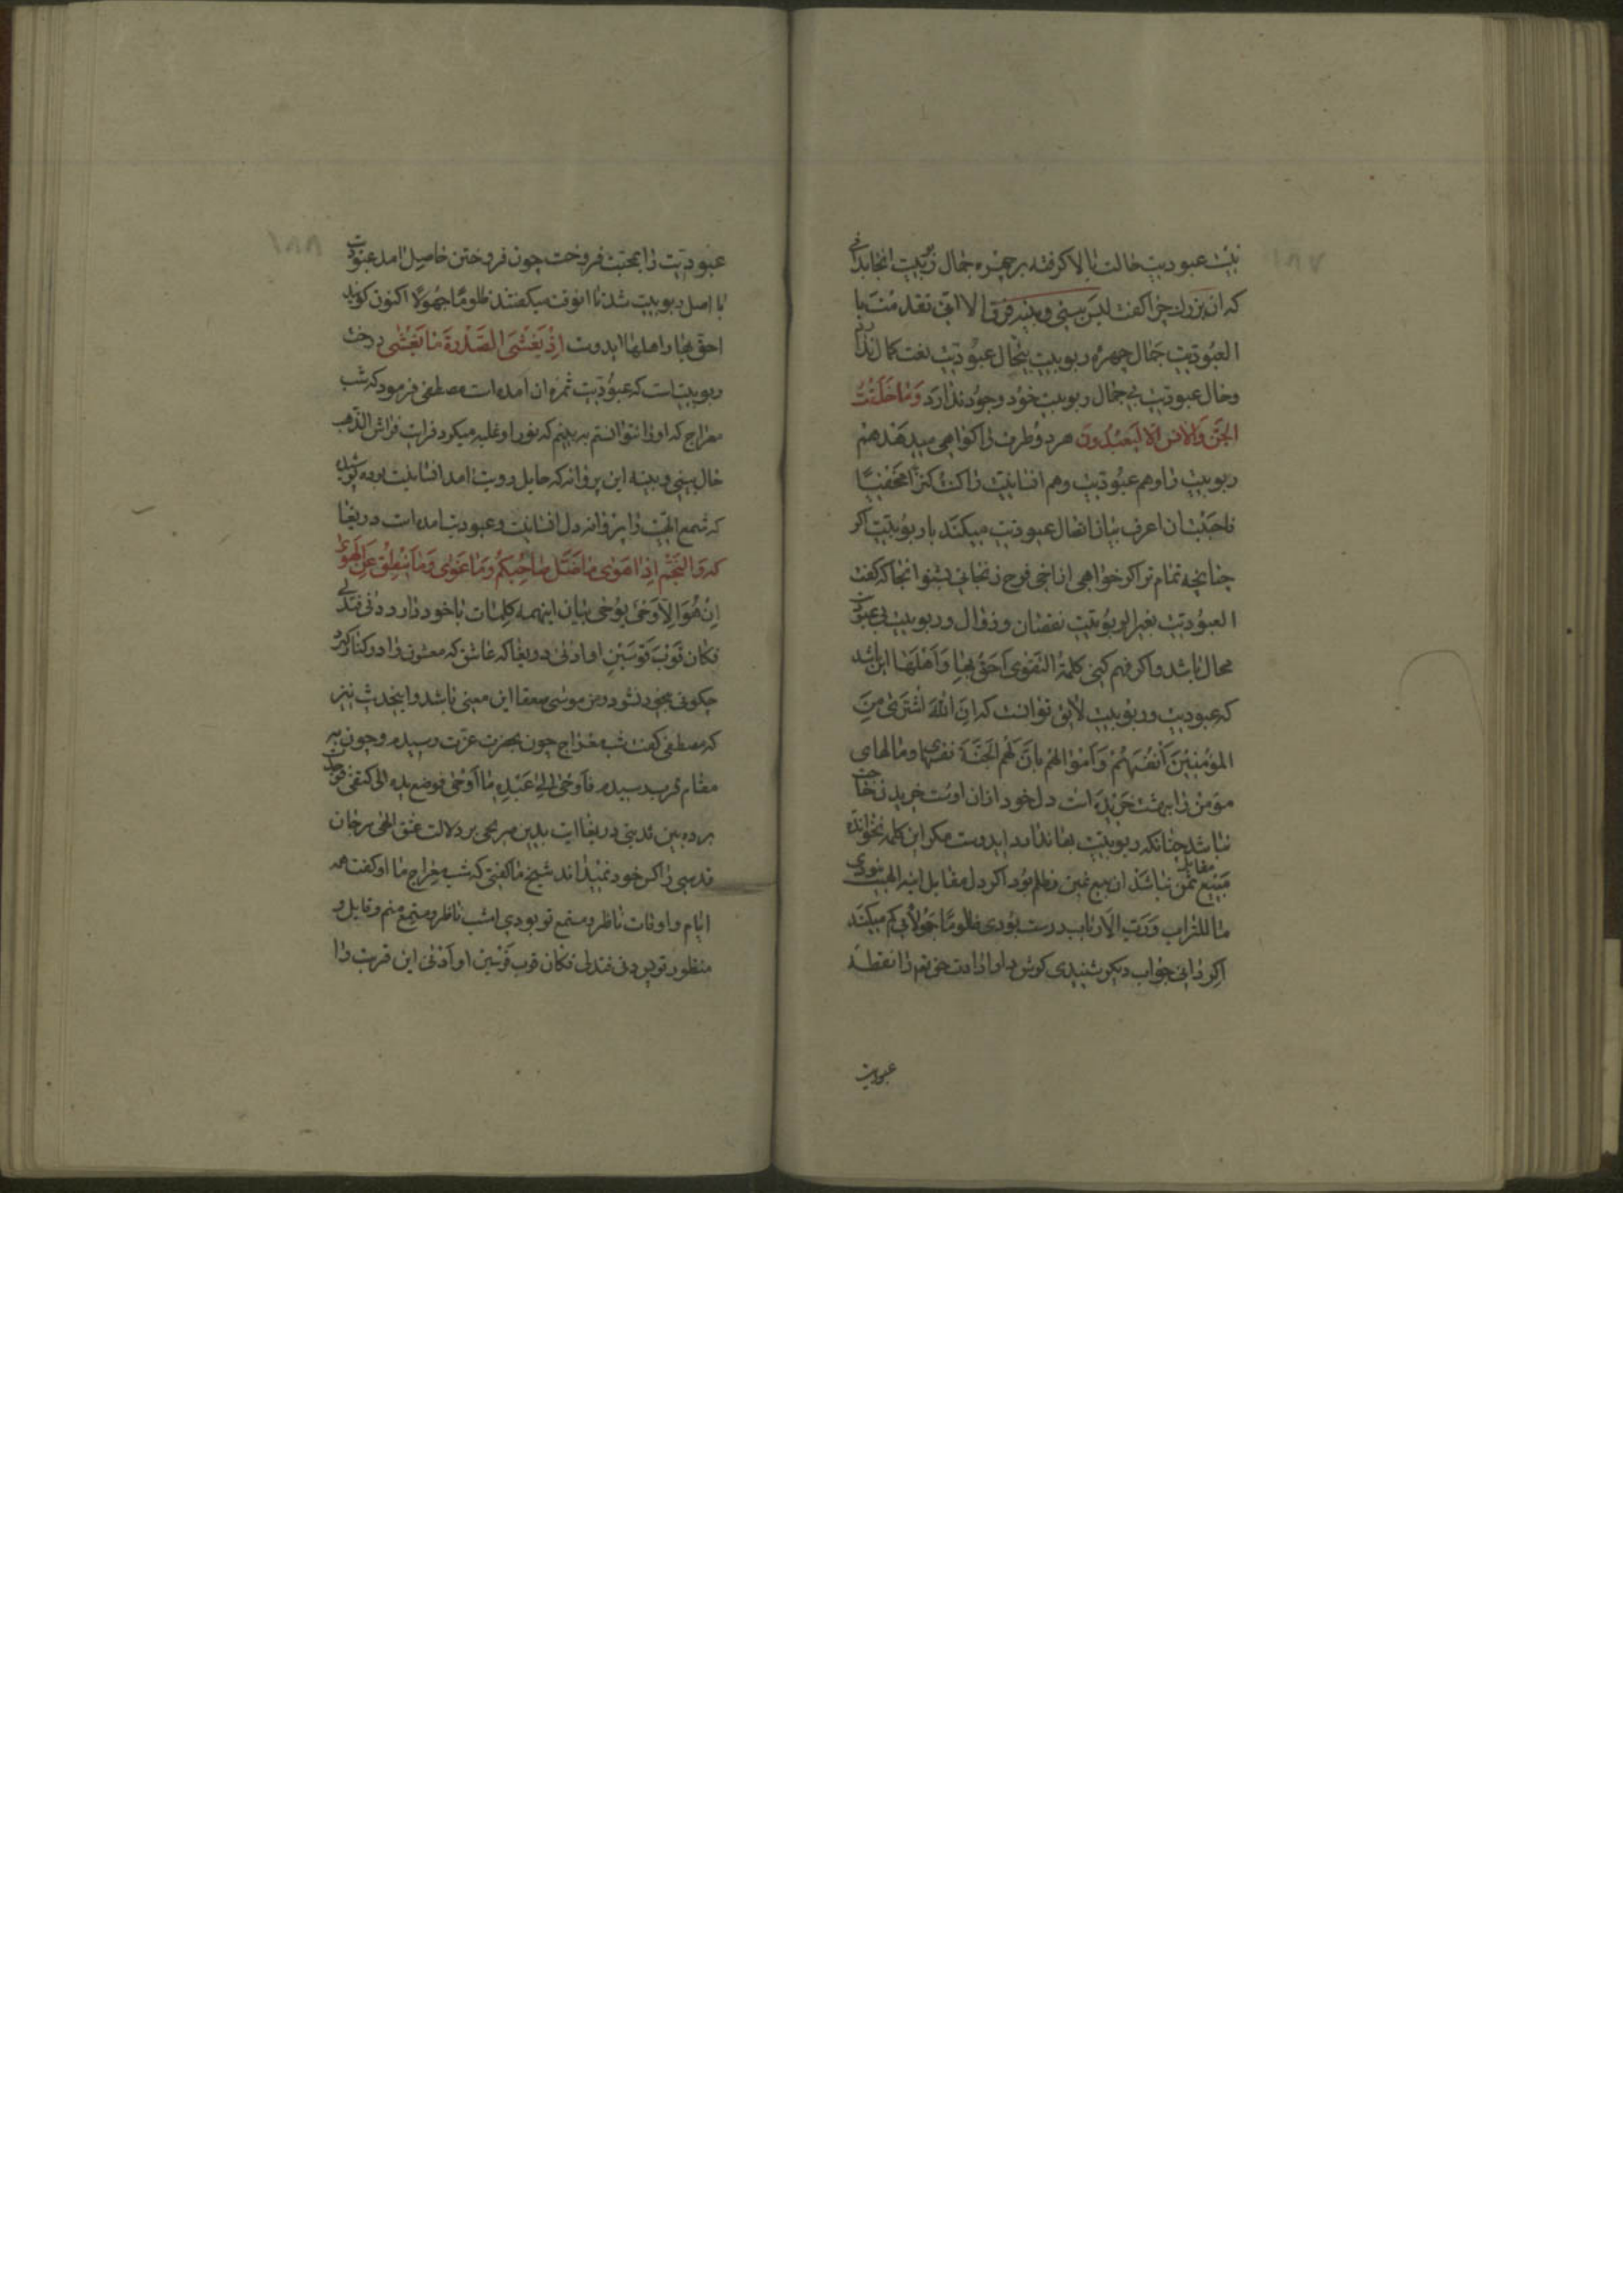 ۱۸۷
نیست عبودیت خالیت بالا گرفته بر چهره جمال ربوبیت انجا بدانی
که آن بزرك چرا گفت لیس بینی و بینه فرق الا انی تقدمت با
العبودیت جمال چهره ربوبیت بیخال عبودیت نعت کمال ندارد
وخال عبودیت بی جمال ربوبیت خود وجود ندارد وَمٰا خَلَقْتُ
الجِنَّ وَالاِنسَ اِلّا لِیَعبُدُونَ هر دو طرف را کواهی میدهد هم
ربوبیت را وهم عبودیت وهم انسانیت را کنت کنزا مخفیّا
فاحببت ان اعرف بیان اتصال عبودیت میکند با ربوبیت اکر
چنانچه تمام تر اکر خواهی از اخی فرج زنجانی بشنو انجا که کفت
العبودیت بغیر الربوبیت نقصان وزوال وربوبیت بی عبودیت
محال باشد واکر فهم کنی کلمة التقوی احق بها واهلها این باشد
که عبودیت وربوبیت لایق توانست که ان الله اشتری من
المؤمنین انفسهم واموالهم بان لهم الجنة نفسها ومالهای
مؤمن را ببهشت خریده است دل خود ازان اوست خریدن حاجت
نباشد چنانکه ربوبیت بها ندارد ایدوست مکر این کلمه نخوانده
مبیع مقابل ثمن نباشد ان بیع غبن وظلم بود اکر دل مقابل الهیت بودی
ما للتراب ورب الارباب درست بودی ظلوما جهولا بکم میکند
اکر دانی جواب دیکر شنیدی کوش دار ارادت خریم را نقطه
عبودیت
۱۸۸
عبودیت را بمحبت فروخت چون فروختن حاصل امد عبودیت
با اصل ربوبیت شد تا انوقت میکفتند ظلوما جهولا اکنون کویند
احق بها واهلها ایدوست اِذْ یَغْشَی السِّدْرَةَ مٰا یَغْشٰی درخت
ربوبیت است که عبودیت ثمره ان آمده است مصطفی فرمود که شب
معراج که او را نتوانستم به بینم که نور او غلبه میکرد فرایت فراش الذهب
حال بینی وبینه این پروانه که حایل رویت امد انسانیت بوده کویند
که شمع الهیت را پروانه دل انسانیت وعبودیت امده است دریغا
که وَالنَّجْمِ اِذٰا هَوٰی مٰا ضَلَّ صٰاحِبُکُمْ وَمٰا غَوٰی وَمٰا یَنْطِقُ عَنِ الْهَوٰی
اِنْ هُوَ اِلّٰا وَحْیٌ یُوحٰی بیان اینهمه کلمات با خود دارد دنی فتدلی
فکان قوب قوسین او ادنی دریغا که عاشق که معشوق را در کنار کیرد
چکونه بیخود نشود وخر موسی صعقا این معنی باشد واینحدیث نیز
که مصطفی کفت شب معراج چون بحضرت عزت رسیدم وچون به
مقام قرب رسیدم فاوحی الی عبده ما اوحی فوضع یده الی کتفی فوجدت
برده بین ثدیی دریغا ایت بدین صریحی بر دلالت عشق الهی برجان
قدسی را کر خود نمیداند شیخ ما کفتی که شب معراج ما او کفت همه
ایام واوقات ناظر ومستمع تو بودی امشب ناظر ومستمع منم وقایل و
منظور توی دنی فتدلی فکان قوب قوسین او أدنی این قربت را